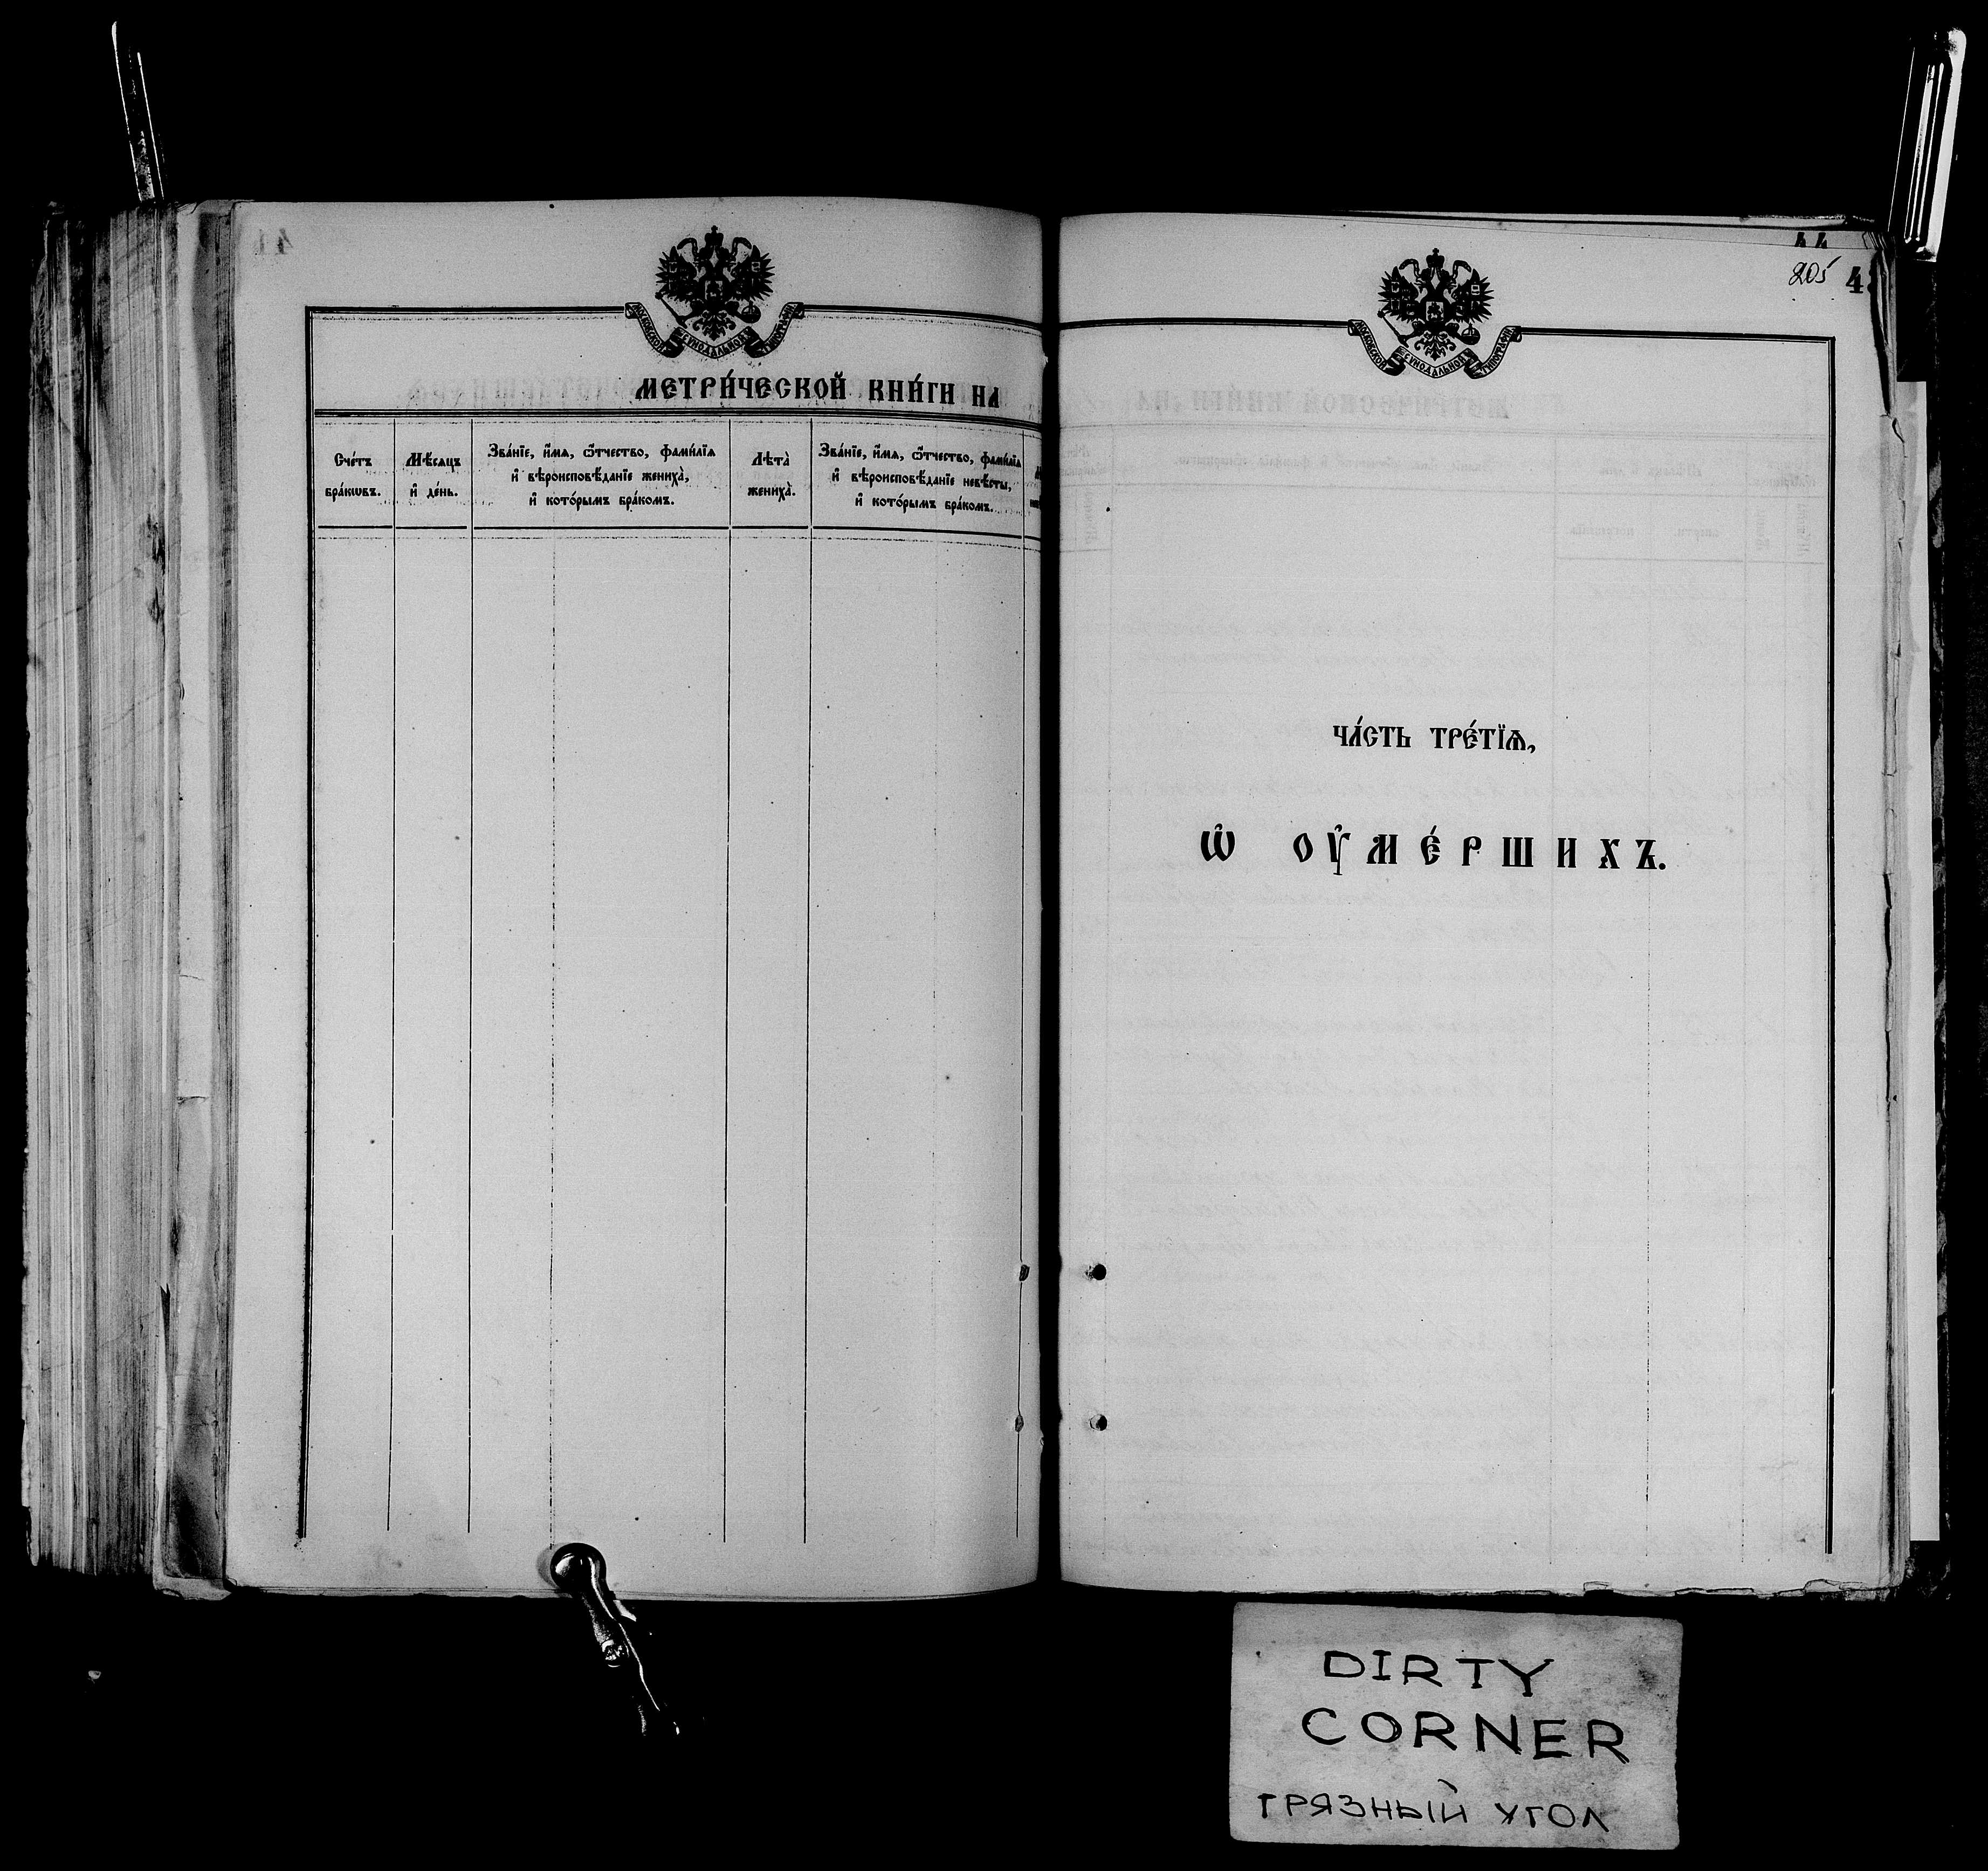 МОСКОВСКОЙ СѴНОДАЛЬНОЙ ТИПОГРАФІИ
МЕТРИ́ЧЕСКОЙ КНИ́ГИ НА
Сче́тъ бра́кѡвъ.
Мѣ́сяцъ и҆ де́нь.
Зва́нїе, и҆́мя, ѻ҆́тчество, фами́лїя
и҆ вѣроисповѣ́данїе жениха̀,
и҆ кото́рымъ бра́комъ.
Лѣта̀ жениха̀.
Зва́нїе, и҆́мя, ѻ҆́тчество, фами́лїя
и҆ вѣроисповѣ́данїе невѣ́сты,
и҆ кото́рымъ бра́комъ.
44
205
МОСКОВСКОЙ СѴНОДАЛЬНОЙ ТИПОГРАФІИ
ЧА́СТЬ ТРЕ́ТЇѦ,
Ѡ҆ ОУ҆МЕ́РШИХЪ.
DIRTY
CORNER
ГРЯЗНЫЙ УГОЛ